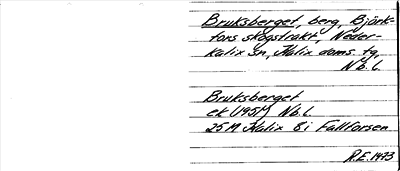 Bruksberget, berg, Björk-
fors skogstrakt, Neder-
Kalix sn, Kalix doms. tg,
Nb. l.
Bruksberget
ek (1951) Nb. l.
25 M Kalix 8 i Fallforsen
R.E. 1973